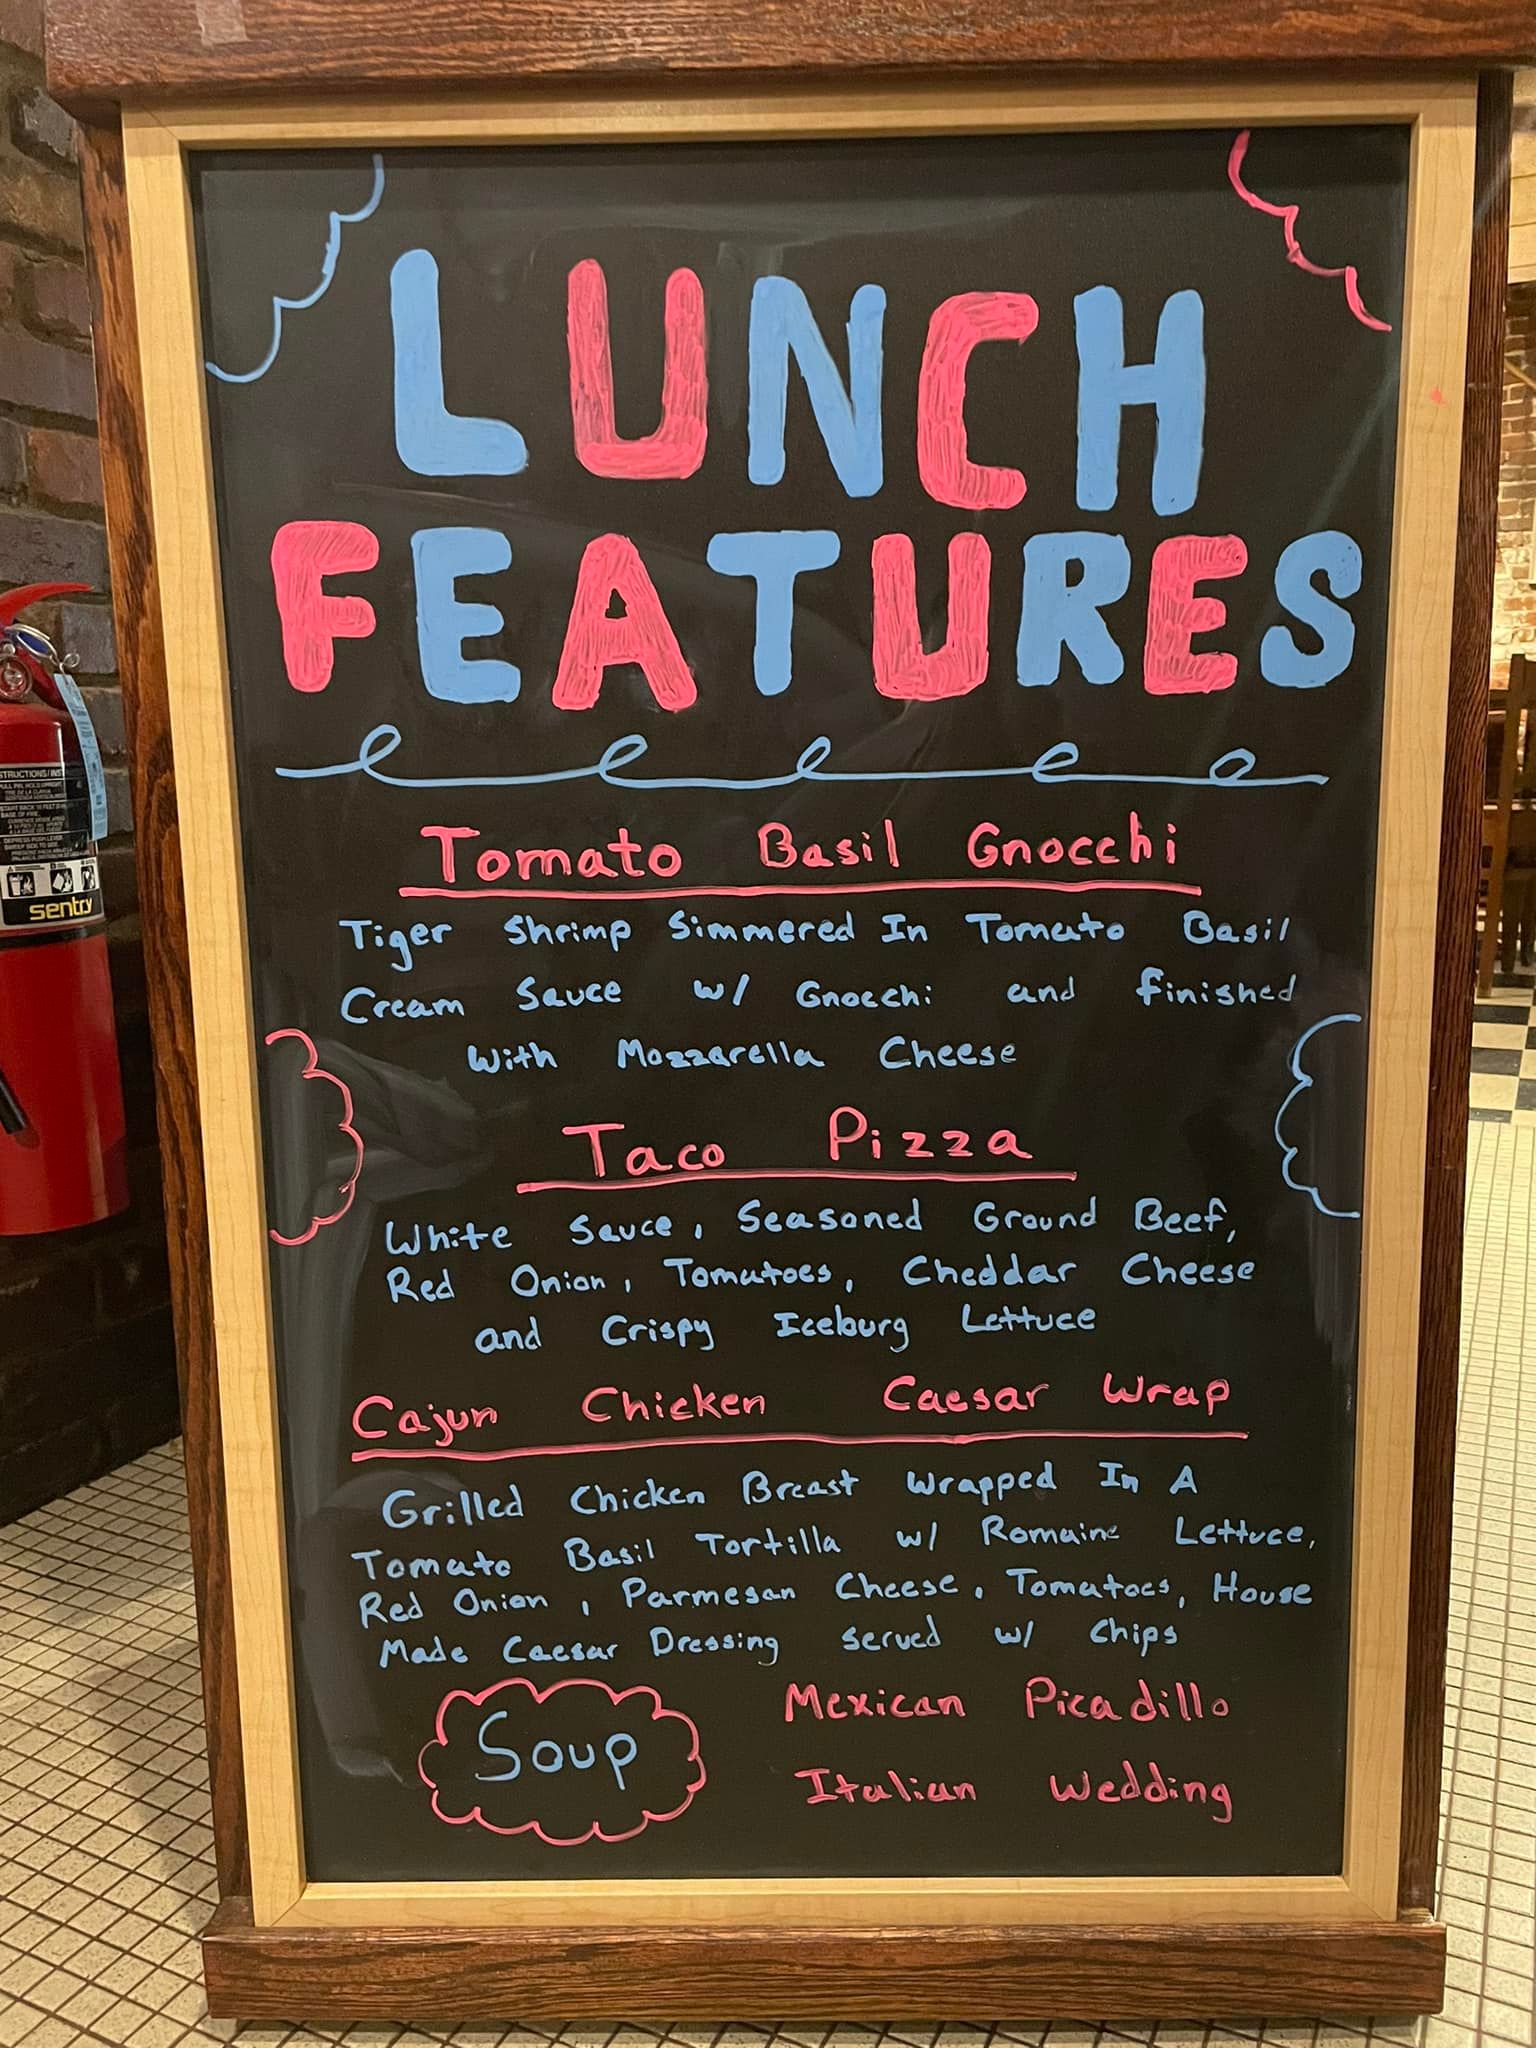 LUNCH
FEATURES
Tomato Basil Gnocchi
Tiger Shrimp Simmered In Tomato Basil
Cream Sauce w/ Gnocchi and finished
with Mozzarella Cheese
Taco Pizza
White Sauce, Seasoned Ground Beef,
Red Onion, Tomatoes, Cheddar Cheese
and Crispy Iceburg Lettuce
Cajun Chicken Caesar Wrap
Grilled Chicken Breast Wrapped In A
Tomato Basil Tortilla w/ Romaine Lettuce,
Red Onion, Parmesan Cheese, Tomatoes, House
Made Caesar Dressing served w/ Chips
Soup
Mexican Picadillo
Italian Wedding
sentry